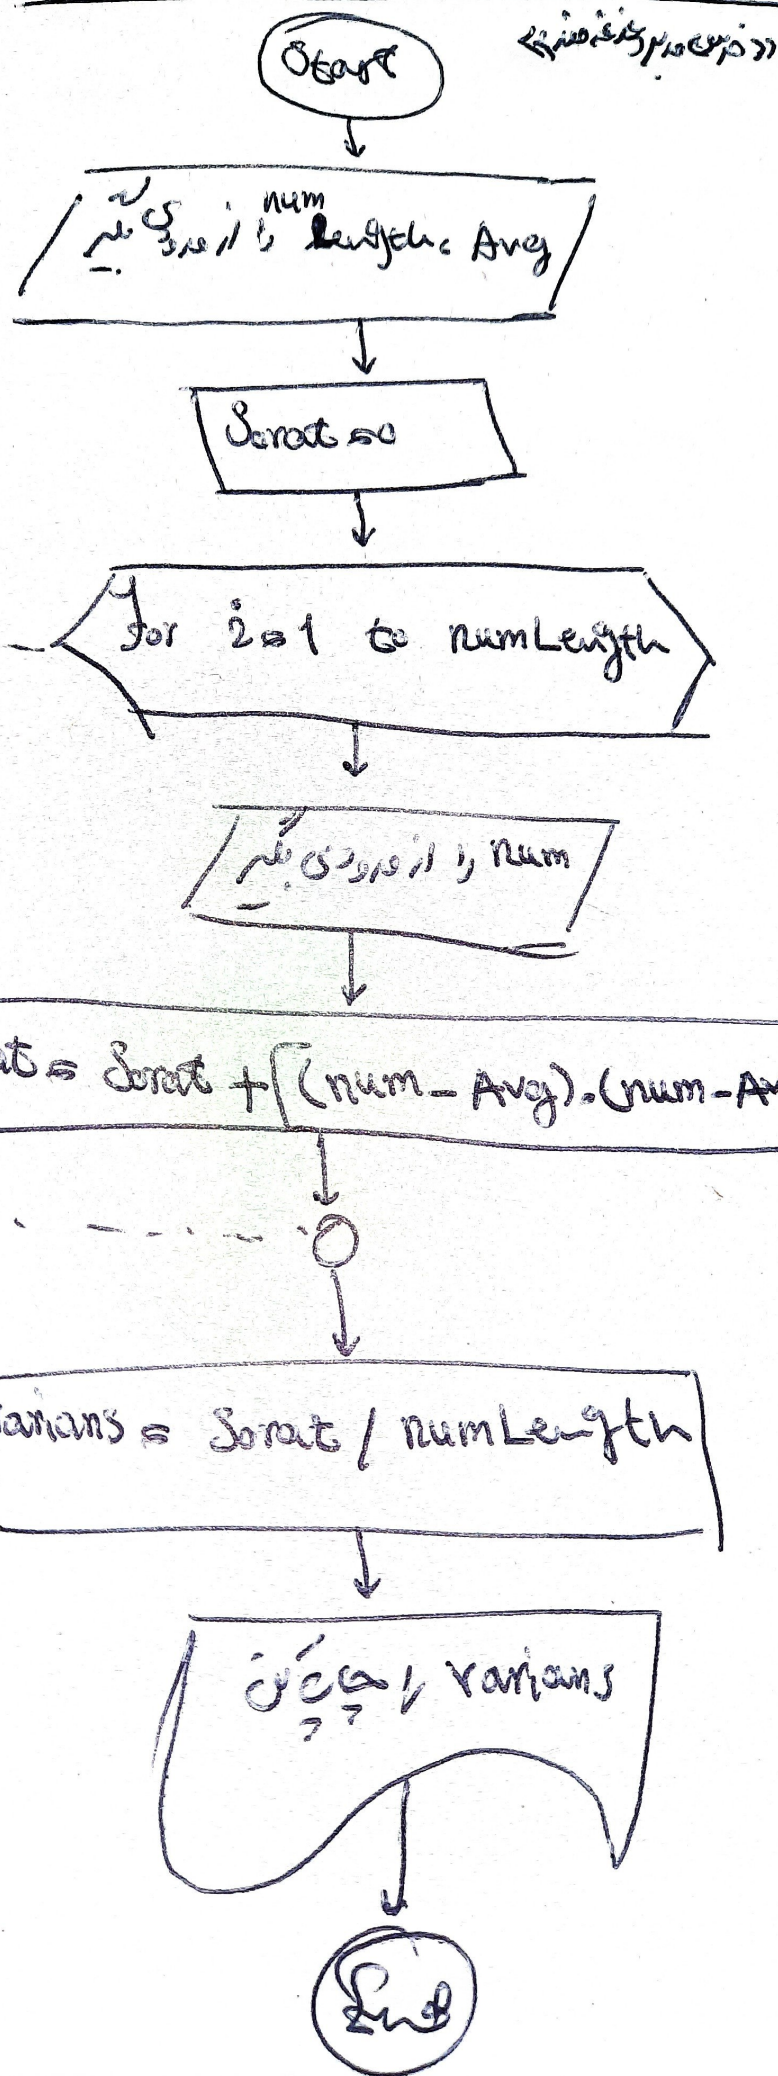 Start
Avg و numLength را از ورودی بگیر
Sorat = 0
for i = 1 to numLength
num را از ورودی بگیر
Sorat + [(num - Avg).(num - Av
= Sorat / numLength
varians را چاپ کن
End